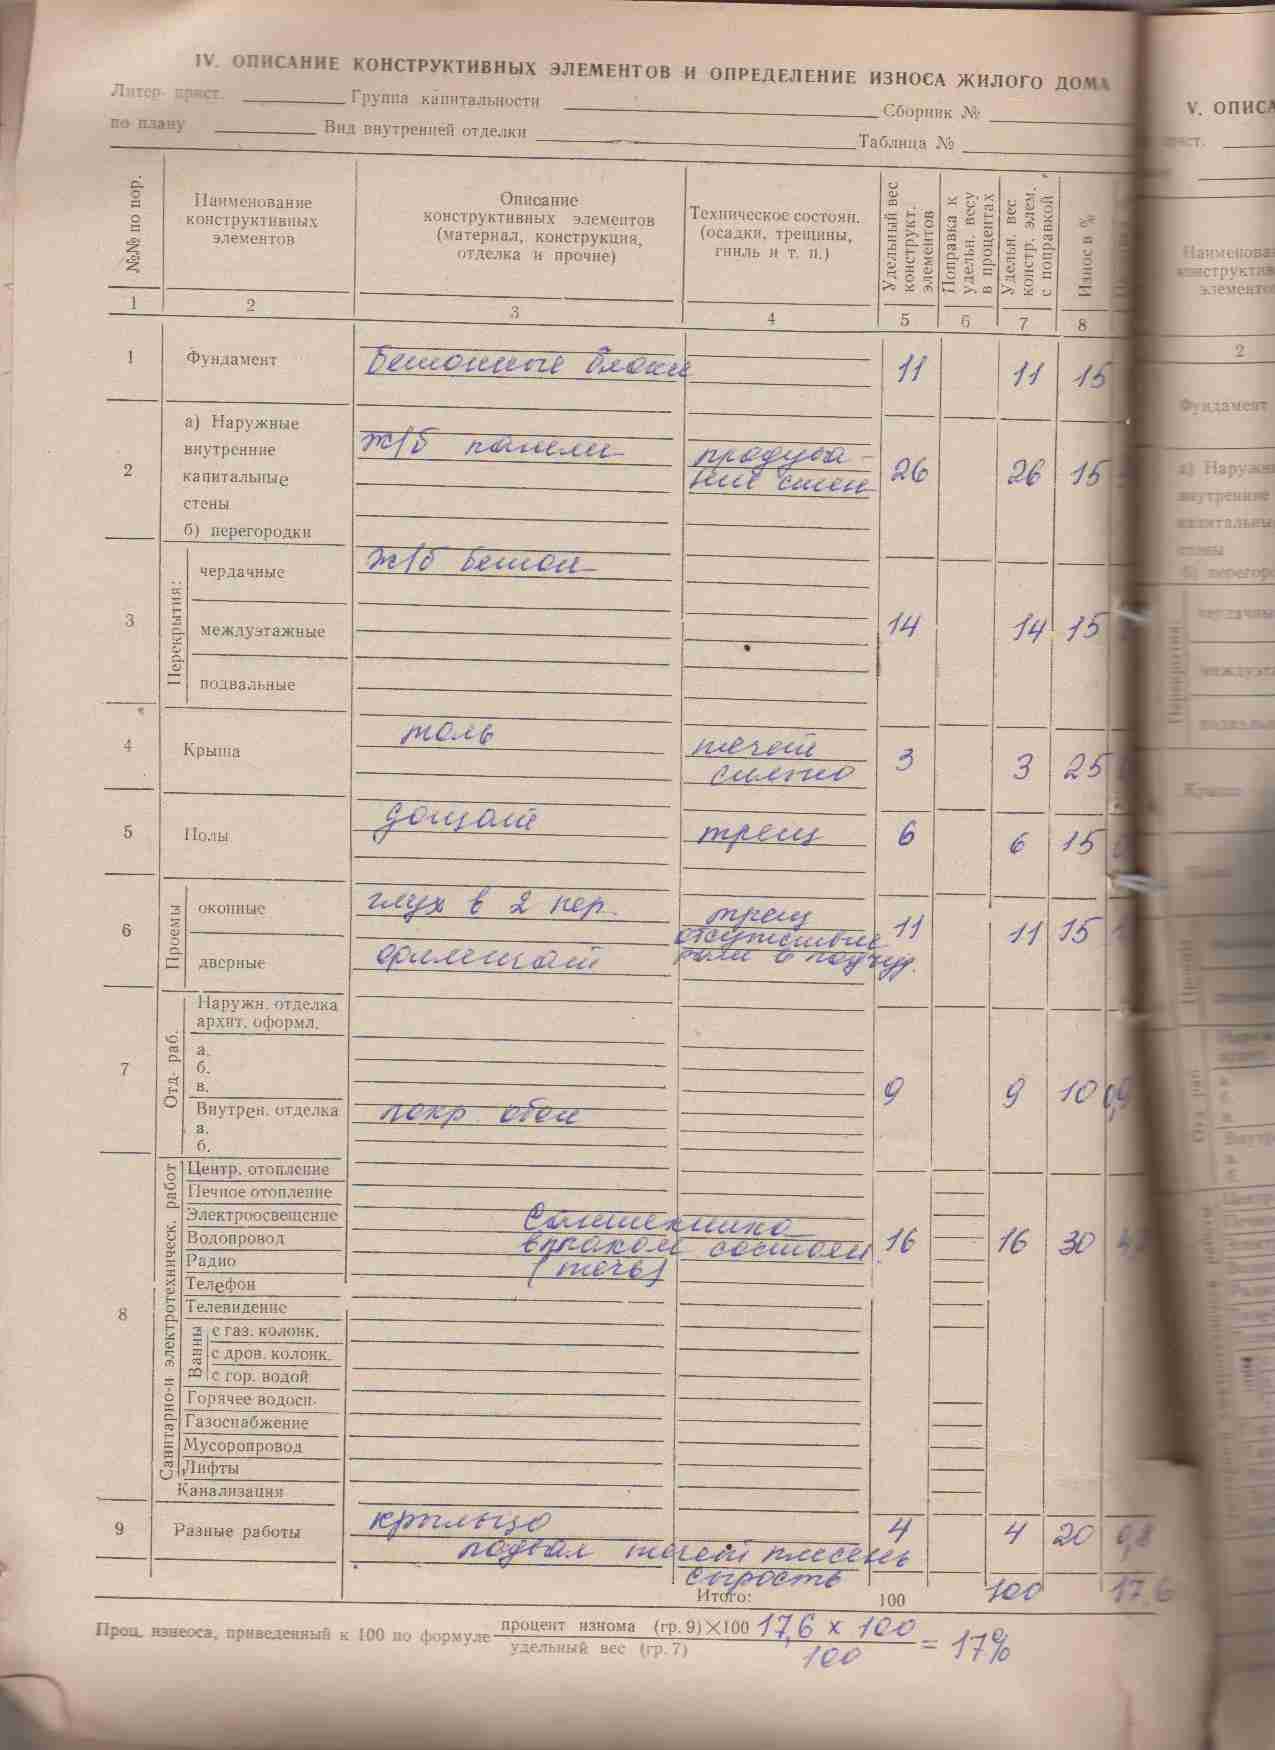 IV. ОПИСАНИЕ КОНСТРУКТИВНЫХ ЭЛЕМЕНТОВ И ОПРЕДЕЛЕНИЕ ИЗНОСА ЖИЛОГО ДОМА
Литер- прист. Группа капитальности Сборник №
по плану Вид внутренней отделки Таблица №
№№ по пор.
Наименование
конструктивных
элементов
Описание
конструктивных элементов
(материал, конструкция,
отделка и прочие)
Техническое состоян.
(осадки, трещины,
гниль и т. п.)
Удельный вес
конструкт.
элементов
Поправка к
удельн. весу
в процентах
Удельн. вес
констр. элем.
с поправкой
Износ в %
1 2 3 4 5 6 7 8
1 Фундамент Бетонные блоки 11 11 15
2 а) Наружные
внутренние
капитальные
стены
б) перегородки
ж/б панели
продува-
ние стен
26 26 15
3 Перекрытия:
чердачные ж/б бетон
междуэтажные
подвальные
14 14 15
4 Крыша толь течет
сильно
3 3 25
5 Полы дощат трещ 6 6 15
6 Проемы
оконные глух в 2 пер. трещ
дверные
11 11 15
7 Отд. раб.
Наружн. отделка
архит. оформл.
а.
б.
в.
Внутрен. отделка покр обои
а.
б.
9 9 10 0,9
8 Санитарно-и электротехническ. работ
Центр. отопление
Печное отопление
Электроосвещение Сантехника
Водопровод состоян
Радио (течь)
Телефон
Телевидение
Ванны
с газ. колонк.
с дров. колонк.
с гор. водой
Горячее водосн.
Газоснабжение
Мусоропровод
Лифты
Канализация
16 16 30
9 Разные работы крыльцо
подвал течет плесень
сырость
4 4 20 0,8
Итого: 100 100 17,6
Проц. изнеоса, приведенный к 100 по формуле
процент изнома (гр. 9)×100
удельный вес (гр. 7)
17,6 х 100
100
= 17%
V. ОПИСА
прист.
Наименован
конструктив
элементо
2
Фундамент
а) Наружн
внутренние
капитальны
стены
б) перегоро